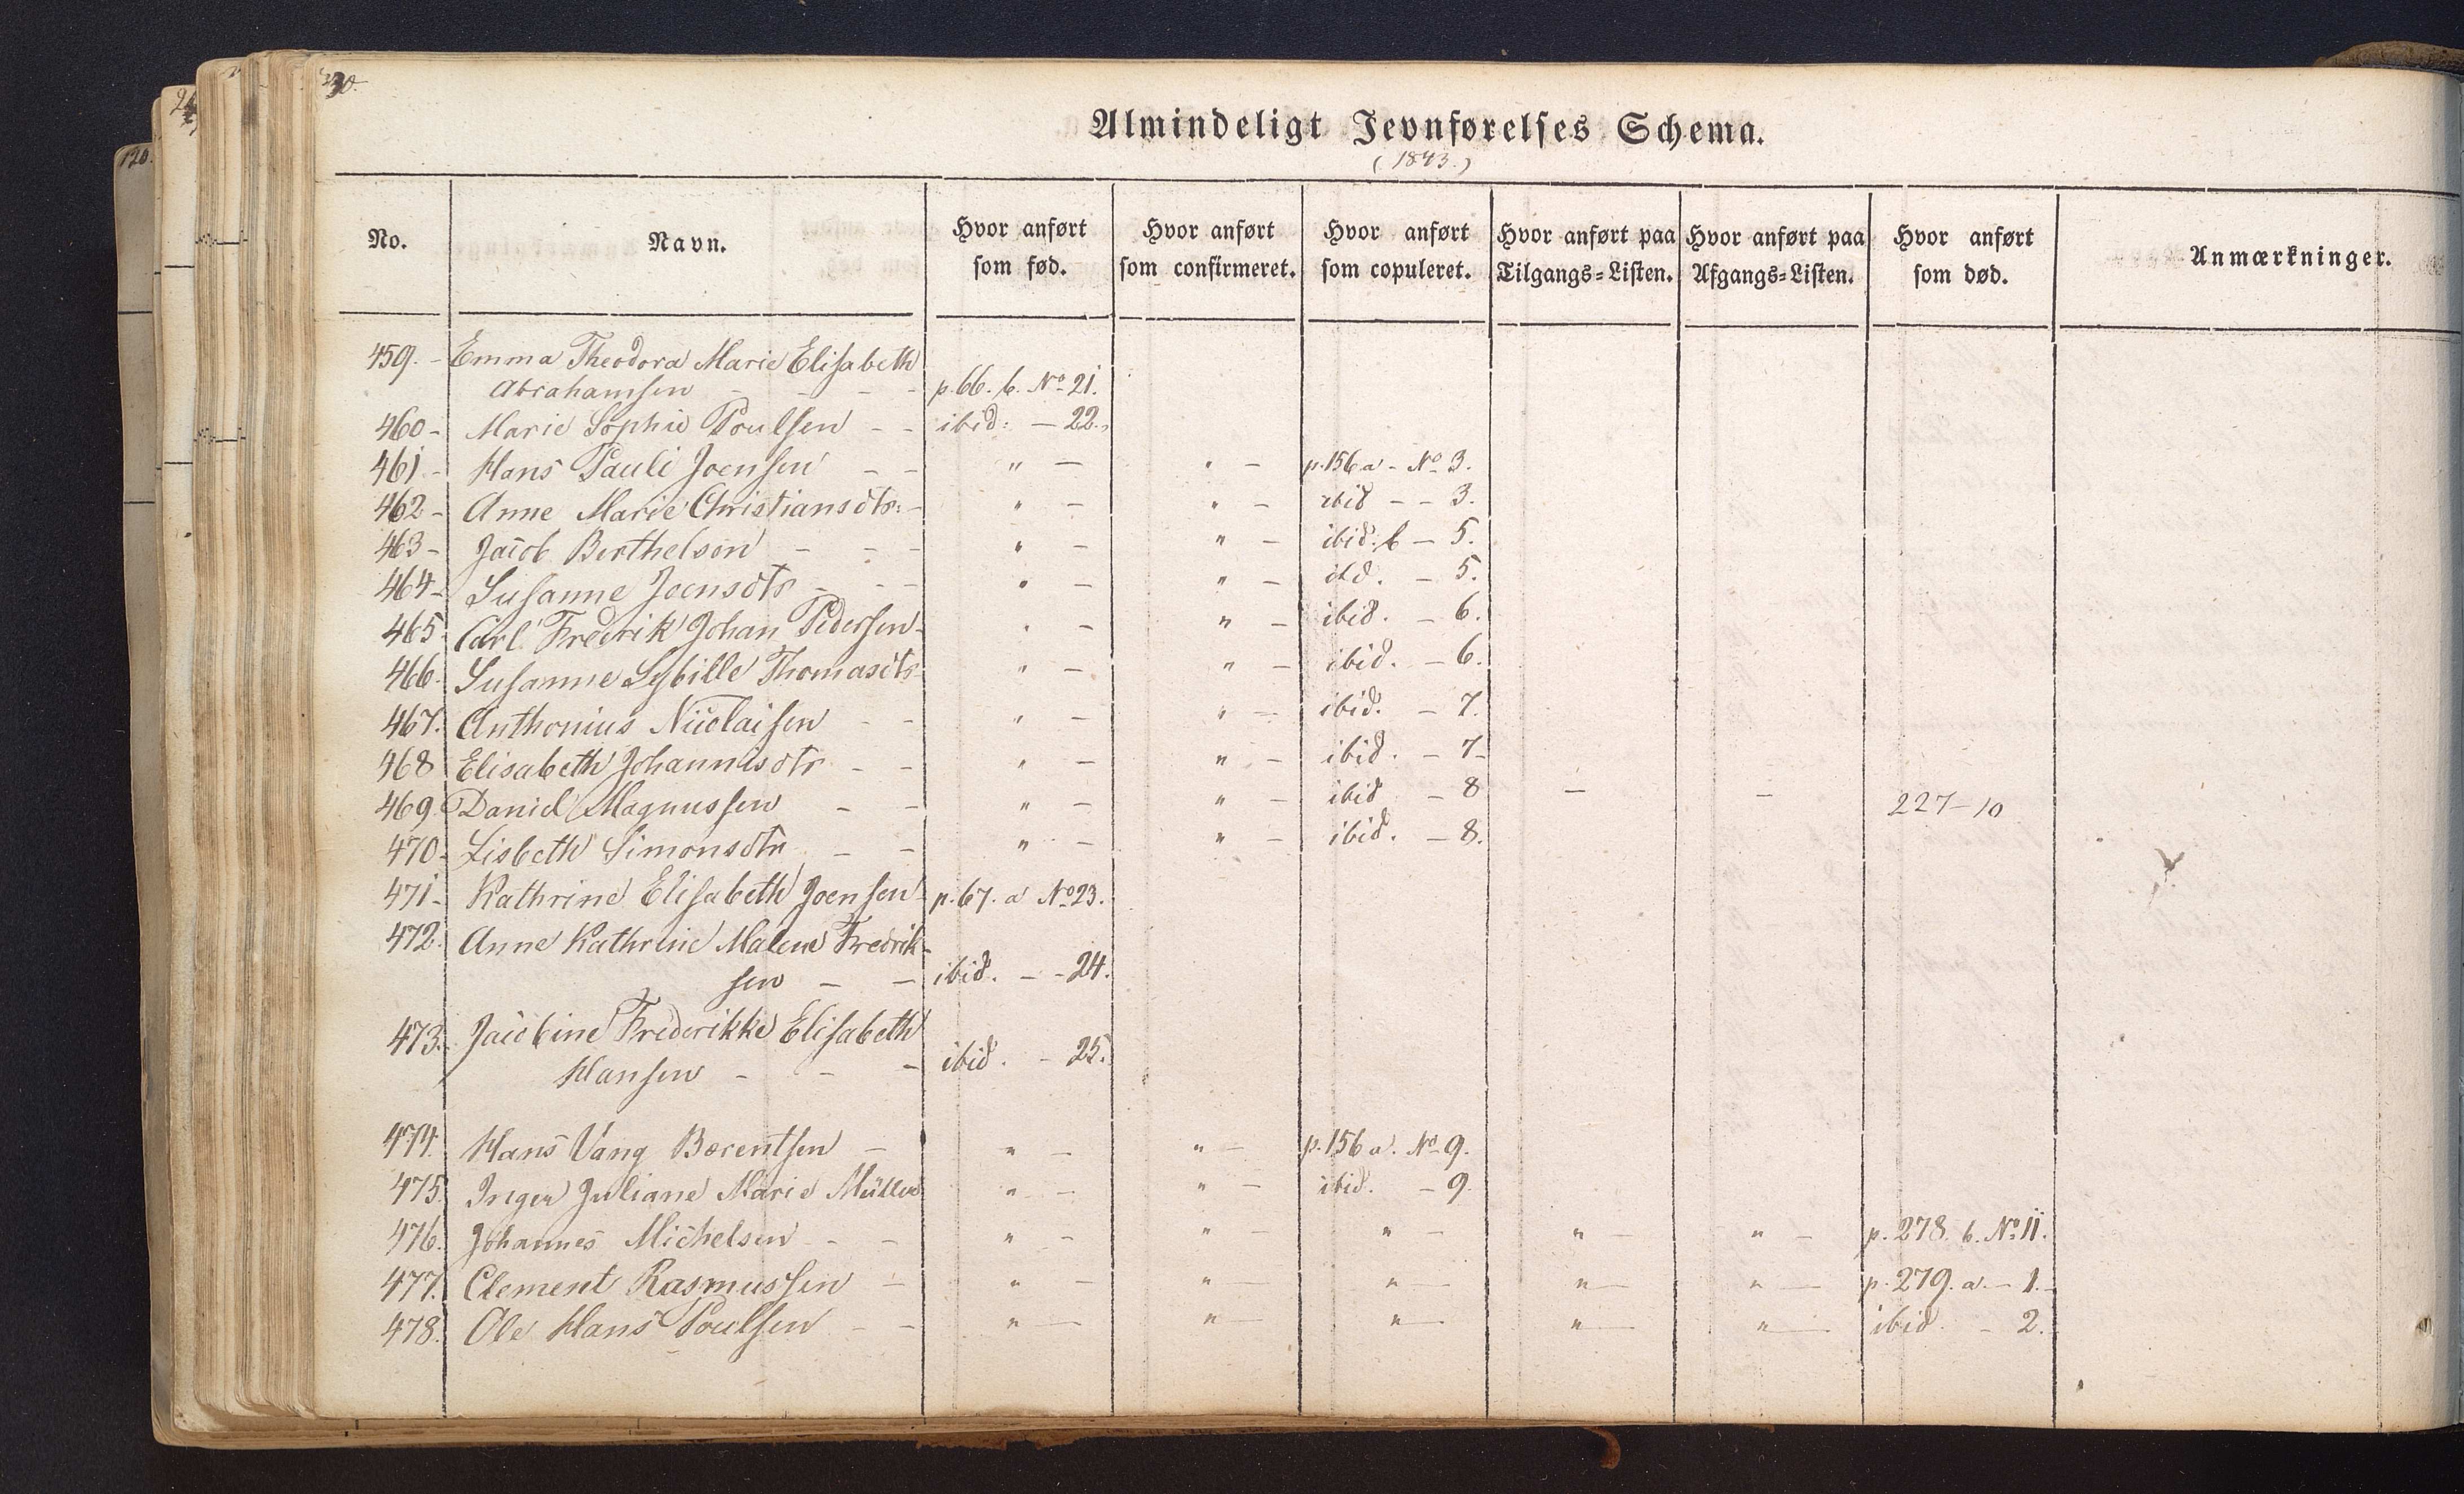 Almindeligt Jevnførelses Schema.
(1843.)
No. Navn. Hvor anført som fød. Hvor anført som confirmeret. Hvor anført som copuleret. Hvor anført paa Tilgangs-Listen. Hvor anført paa Afgangs-Listen. Hvor anført som død. Anmærkninger.
459. - Emma Theodora Marie Elisabeth
Abrahamsen - - - p. 66. b. No 21.
460 - Marie Sophie Poulsen - - ibid: - 22.
461 - Hans Pauli Joensen - - " - " - p. 156 a - No 3.
462 - Anne Marie Christiansdtr: - " - " - ibid - - 3.
463 - Jacob Berthelsen - - - " - " - ibid. b - 5.
464 - Susanne Joensdtr - - - " - " - ibd. - 5.
465 Carl Fredrik Johan Pedersen - " - " - ibid. - 6.
466. Susanne Sybille Thomasdtr " - " - ibid. - 6.
467. Anthonius Nicolaisen - - " - " - ibid. - 7.
468 Elisabeth Johannisdtr - - " - " - ibid. - 7 -
469. Daniel Magnussen - - " - " - ibid - 8 - - 227 - 10
470 - Lisbeth Simonsdtr - - " - " - ibid. - 8.
471 - Kathrine Elisabeth Joensen - p. 67. a No 23.
472. Anne Kathrine Malene Fredrik-
sen - - ibid. - - 24.
473. Jacobine Frederikke Elisabeth
Hansen - - - ibid. - 25.
474. Hans Vang Bærentsen - " - " - p. 156 a. No 9.
475. Inger Juliane Marie Müller " - " - ibid. - 9.
476. Johannes Michelsen - - " - " - " - " - " - p. 278. b. No 11.
477. Clement Rasmussen - " - " - " - " - " - p. 279. a. - 1. -
478. Ole Hans Poulsen - - " - " - " - " - " - ibid. - 2.
120.